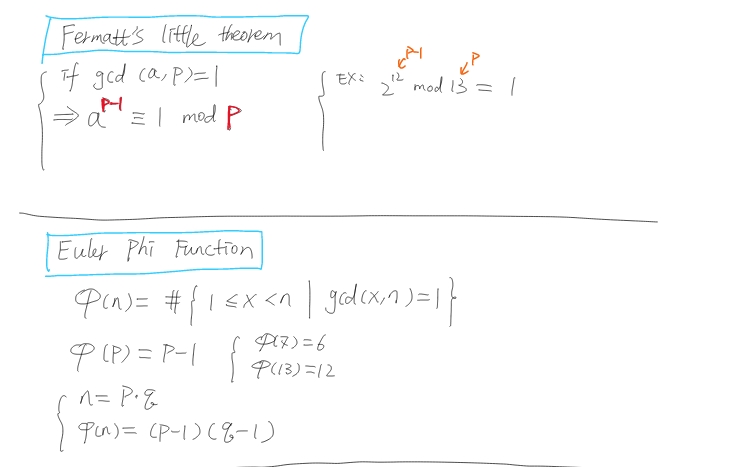 Fermatt's little theorem
If gcd (a, p) = 1
⇒ a^{p-1} ≡ 1 mod p
EX: 2^{12} mod 13 = 1
p-1
p
Euler Phi Function
φ(n) = # { 1 ≤ x < n | gcd(x, n) = 1 }
φ(p) = p-1
φ(7) = 6
φ(13) = 12
n = p·q
φ(n) = (p-1)(q-1)